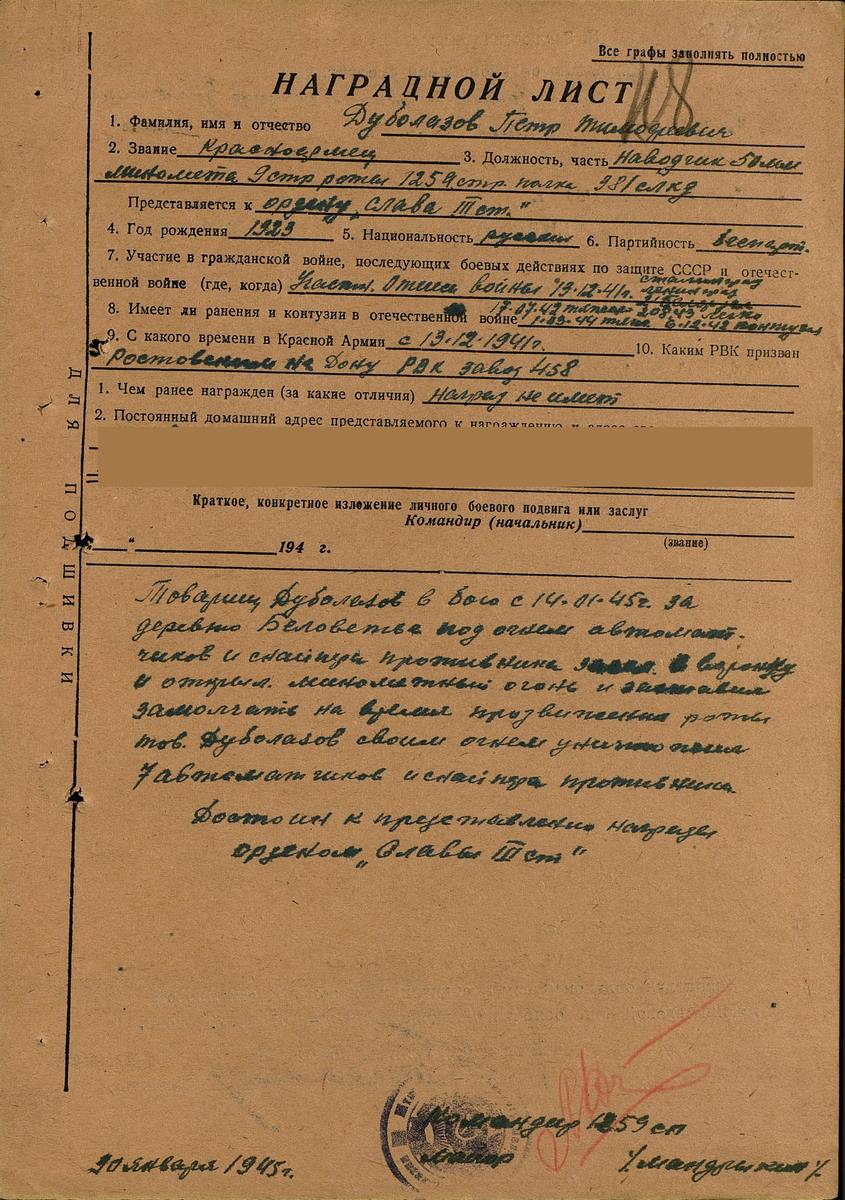 Все графы заполнять полностью
118
НАГРАДНОЙ ЛИСТ
1. Фамилия, имя и отчество Дуболазов Петр Тимофеевич
2. Звание Красноармеец 3. Должность, часть Наводчик 50 мм
миномета 9 стр роты 1259 стр. полка 381 слкд
Представляется к ордену „Слава III ст."
4. Год рождения 1923 5. Национальность русский 6. Партийность беспарт.
7. Участие в гражданской войне, последующих боевых действиях по защите СССР и отечест-
венной войне (где, когда) Участн. Отеч. войны 13.12.41г. Сталинград
Ленинград
8. Имеет ли ранения и контузии в отечественной войне 17.07.42 2.08.43 легко
1.03.44 6.12.42 контузия
9. С какого времени в Красной Армии с 13.12.1941г. 10. Каким РВК призван
Ростовским на Дону РВК завод 458
1. Чем ранее награжден (за какие отличия) Наград не имеет
2. Постоянный домашний адрес представляемого к награждению и адрес
Краткое, конкретное изложение личного боевого подвига или заслуг
Командир (начальник)
(звание)
“ 194 г.
ДЛЯ ПОДШИВКИ
Товарищ Дуболазов в бою с 14.01.45г. за
деревню под огнем автомат-
чиков и снайпера противника в воронку
и открыл минометный огонь и заставил
замолчать на время продвижения роты
тов. Дуболазов своим огнем уничтожил
7 автоматчиков и снайпера противника.
Достоин к представлению награды
орденом „Славы III ст"
Командир 1259 сп
майор /Мандрыкин/
20 января 1945г.